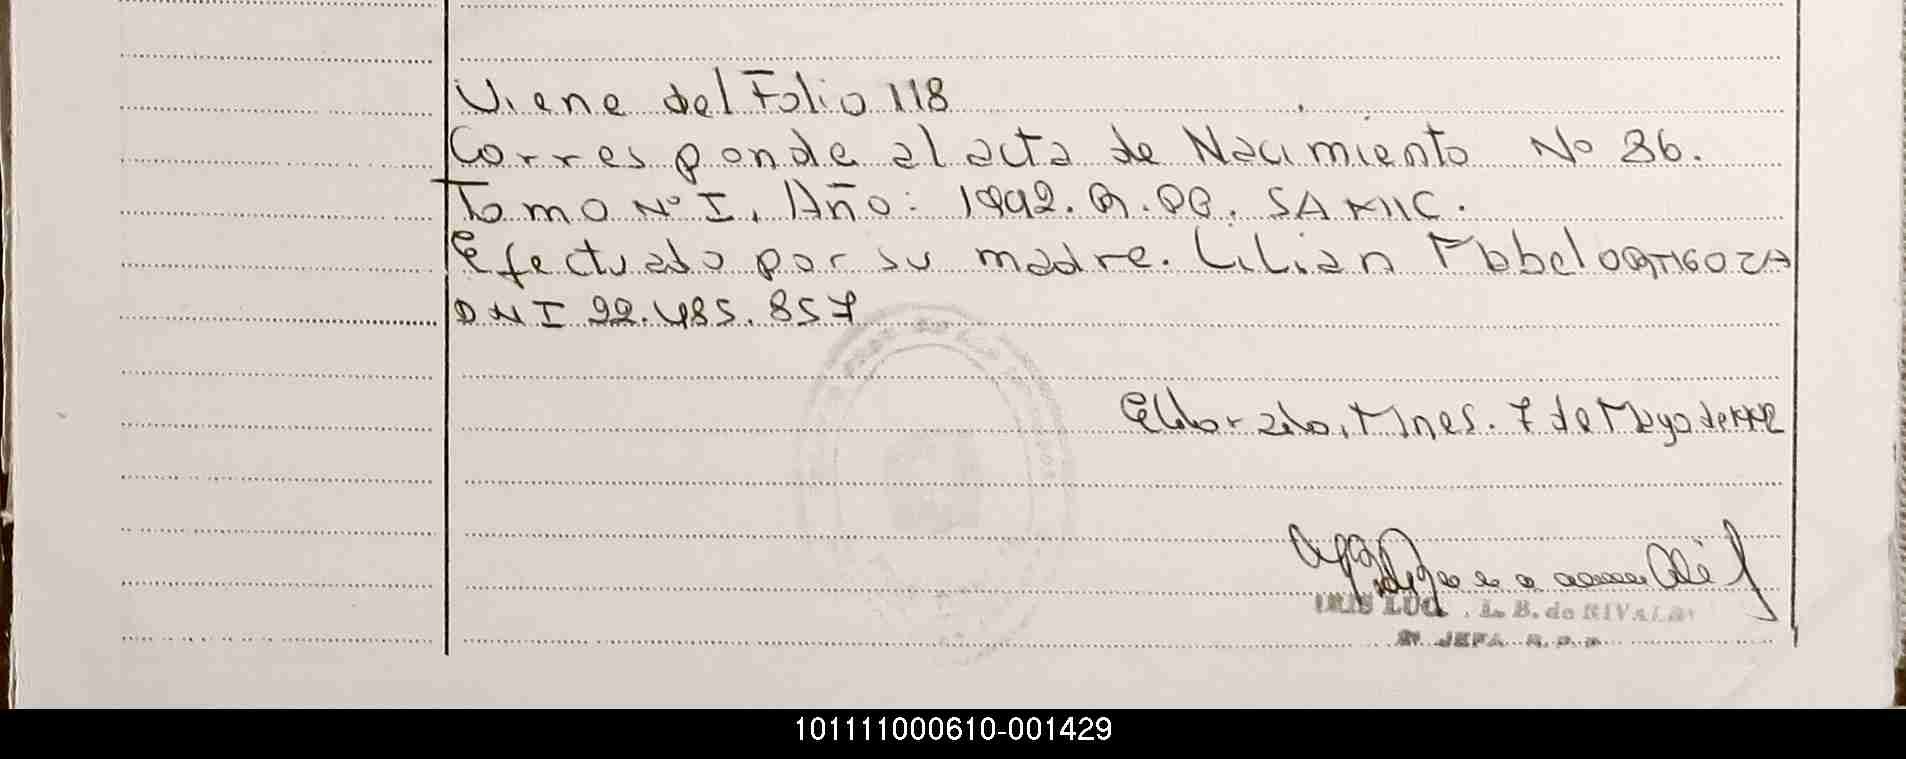 Viene del Folio 118
Corresponde al acta de Nacimiento No 36.
Tomo Nº I, Año: 1992. R. PP. SAMIC.
Efectuado por su madre. Lilian Mabel ORTIGOZA
DNI 22.485.857
Eldorado, Mnes. 7 de Mayo de 1992
IRIS LUC B. de RIVALDI
JEFA R.P.P
101111000610-001429